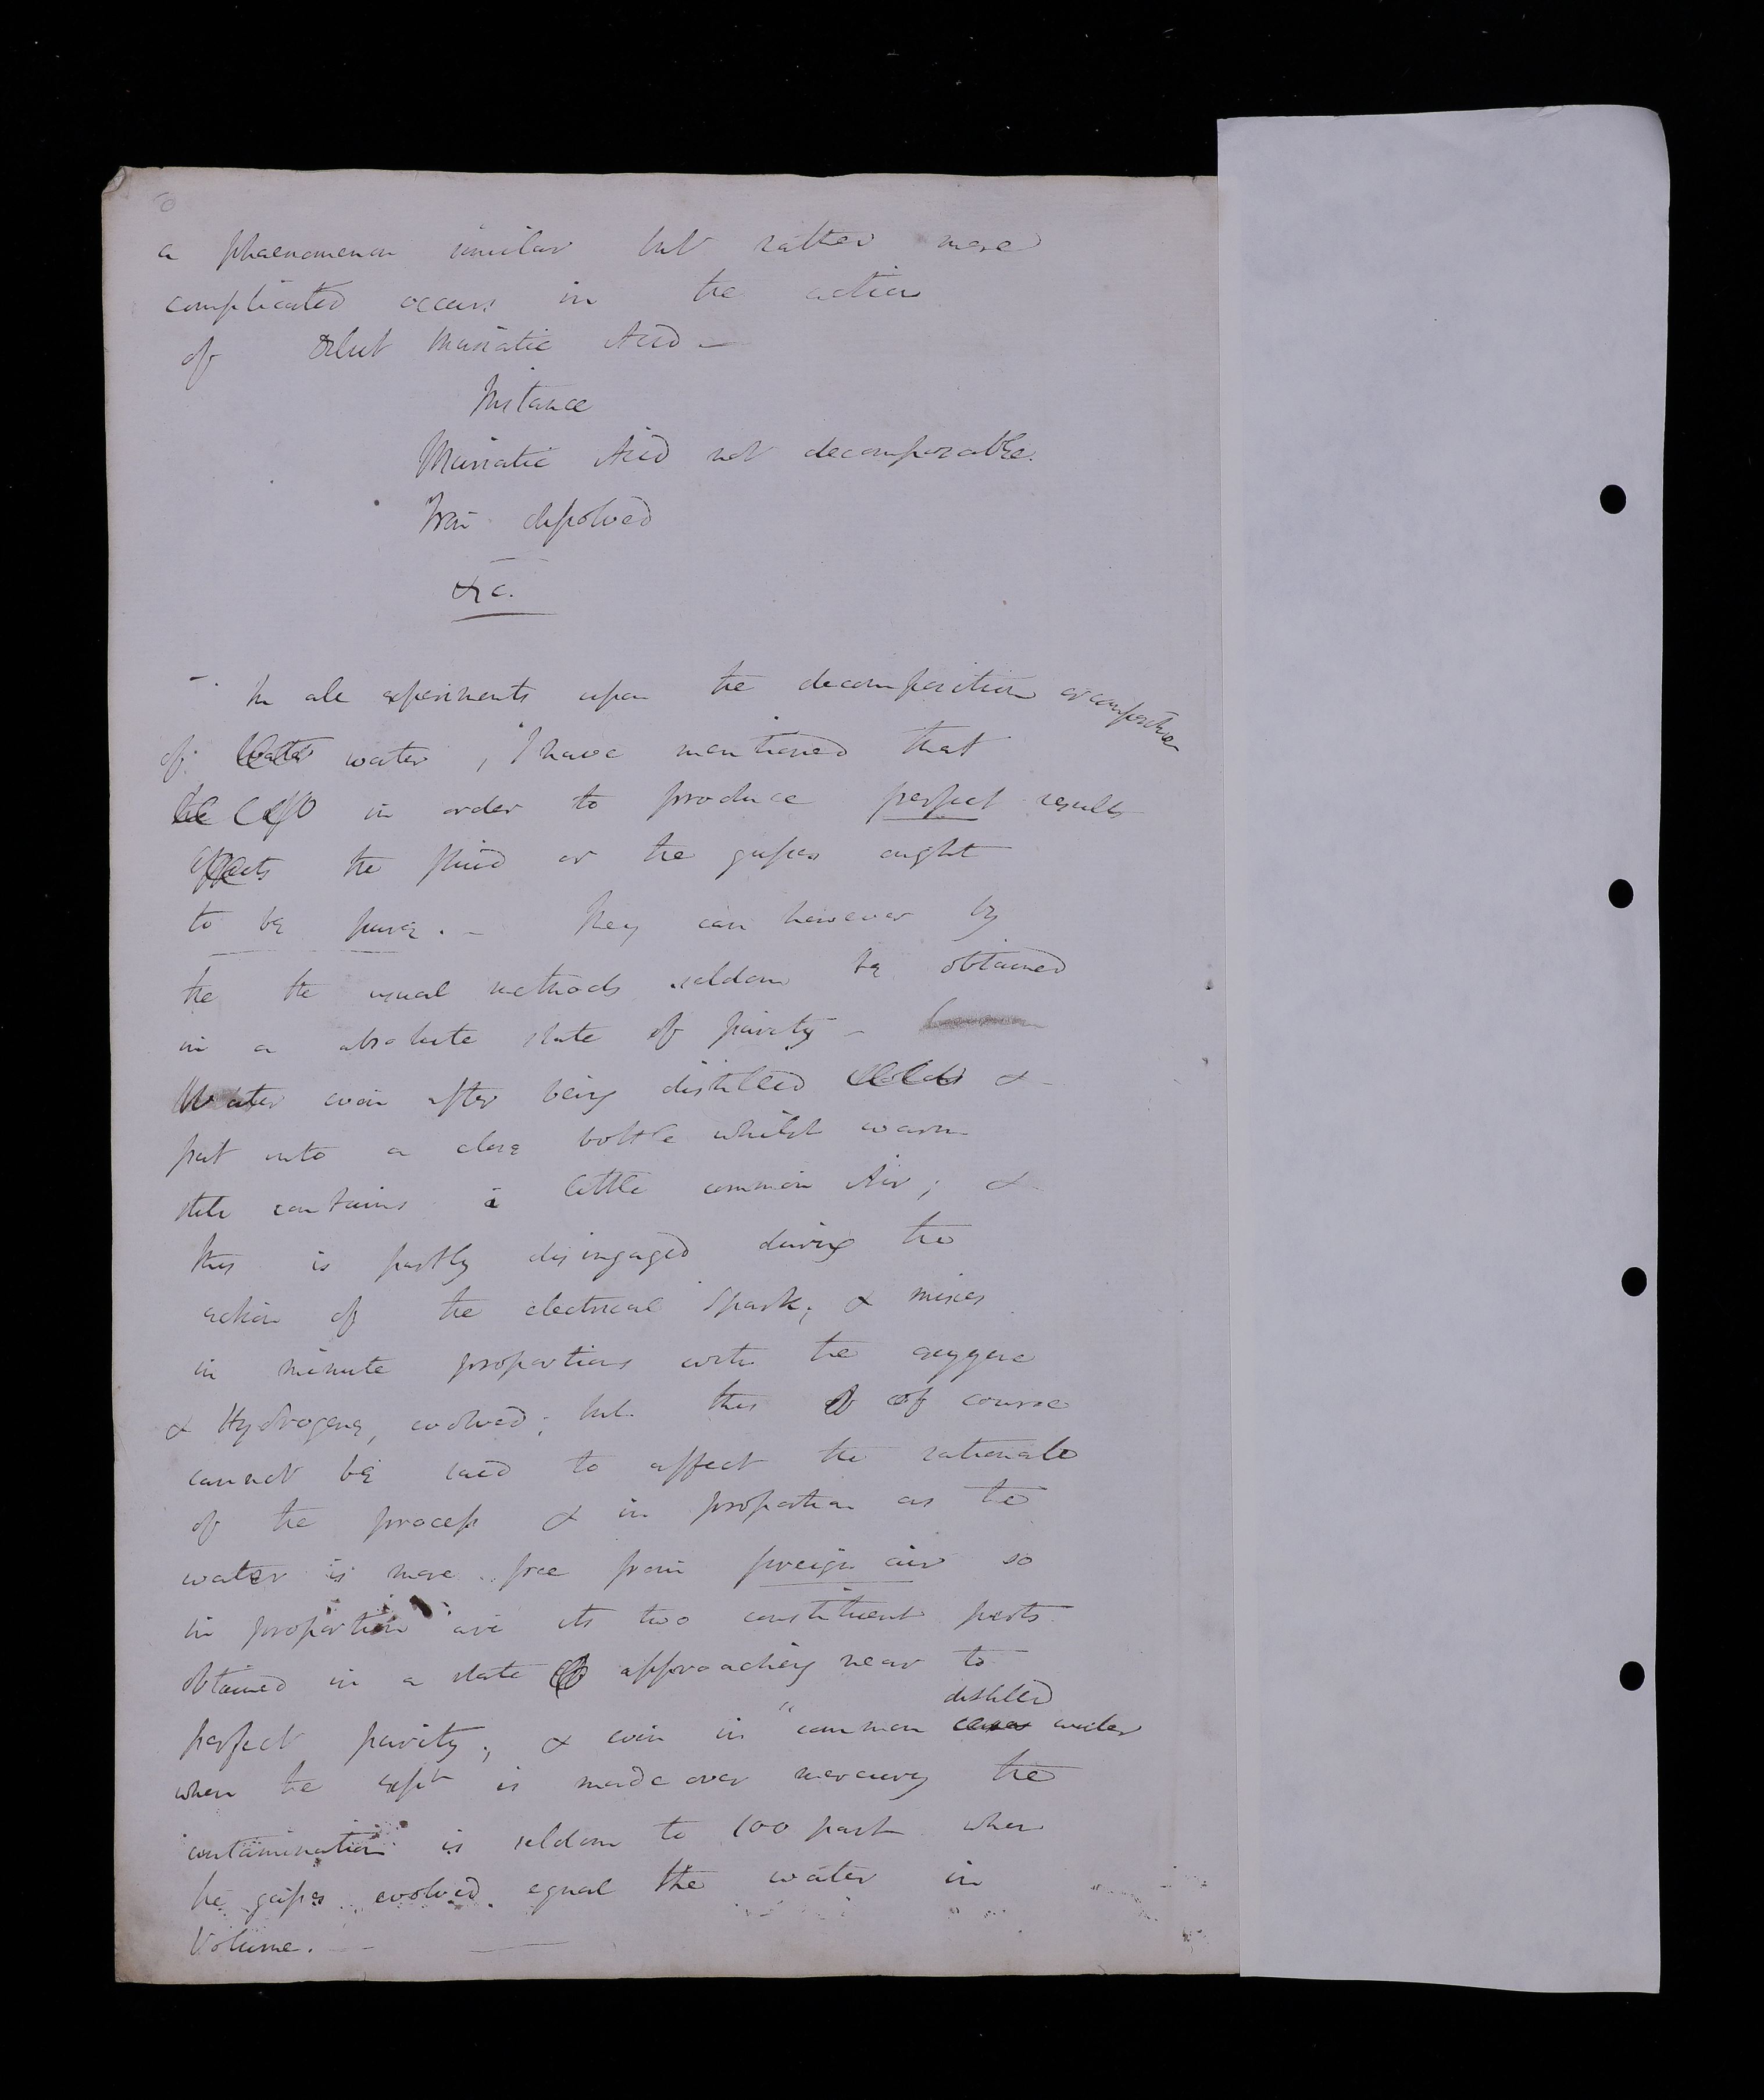 a phaenomenon similar but rather more
complicated occurs in the action
of dilut Muriatic Acid –
Instance
Muriatic Acid not decomposable.
Iron dissolved
&c.
– In all experiments upon the decomposition or composition
of water water, I have mentioned that
in order to produce perfect results
effects the fluid or the gases ought
to be pure. – They can however by
the the usual methods seldom be obtained
in a absolute state of purity –
Water even after being distilled & –
put into a close bottle whilst warm
still contains a little common Air; &
this is partly disingaged during the
action of the electrical spark; & mixes
in minute proportions with the oxygene
& Hydrogene, evolved; but this of course
cannot be said to affect the rationale
of the process & in proportion as the
water is more free from foreign air so
in proportion are its two constituent parts
obtained in a state approaching near to
distilled
perfect purity; & even in common water
when the expt is made over mercury the
contamination is seldom to 100 part when
the gases evolved equal the water in
Volume. –